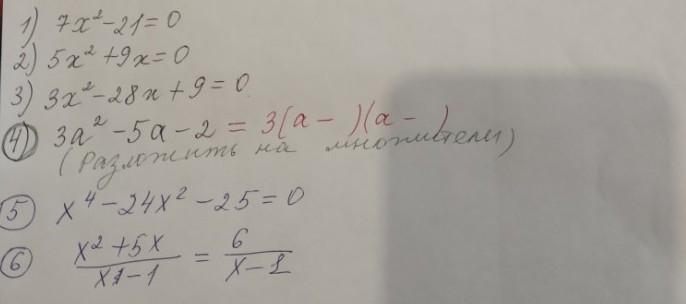 1) 7x² - 21 = 0
2) 5x² + 9x = 0
3) 3x² - 28x + 9 = 0
4) 3a² - 5a - 2 = 3(a - )(a - )
(Разложить на множители)
5 x⁴ - 24x² - 25 = 0
6 (x² + 5x)/(x - 1) = 6/(x - 1)